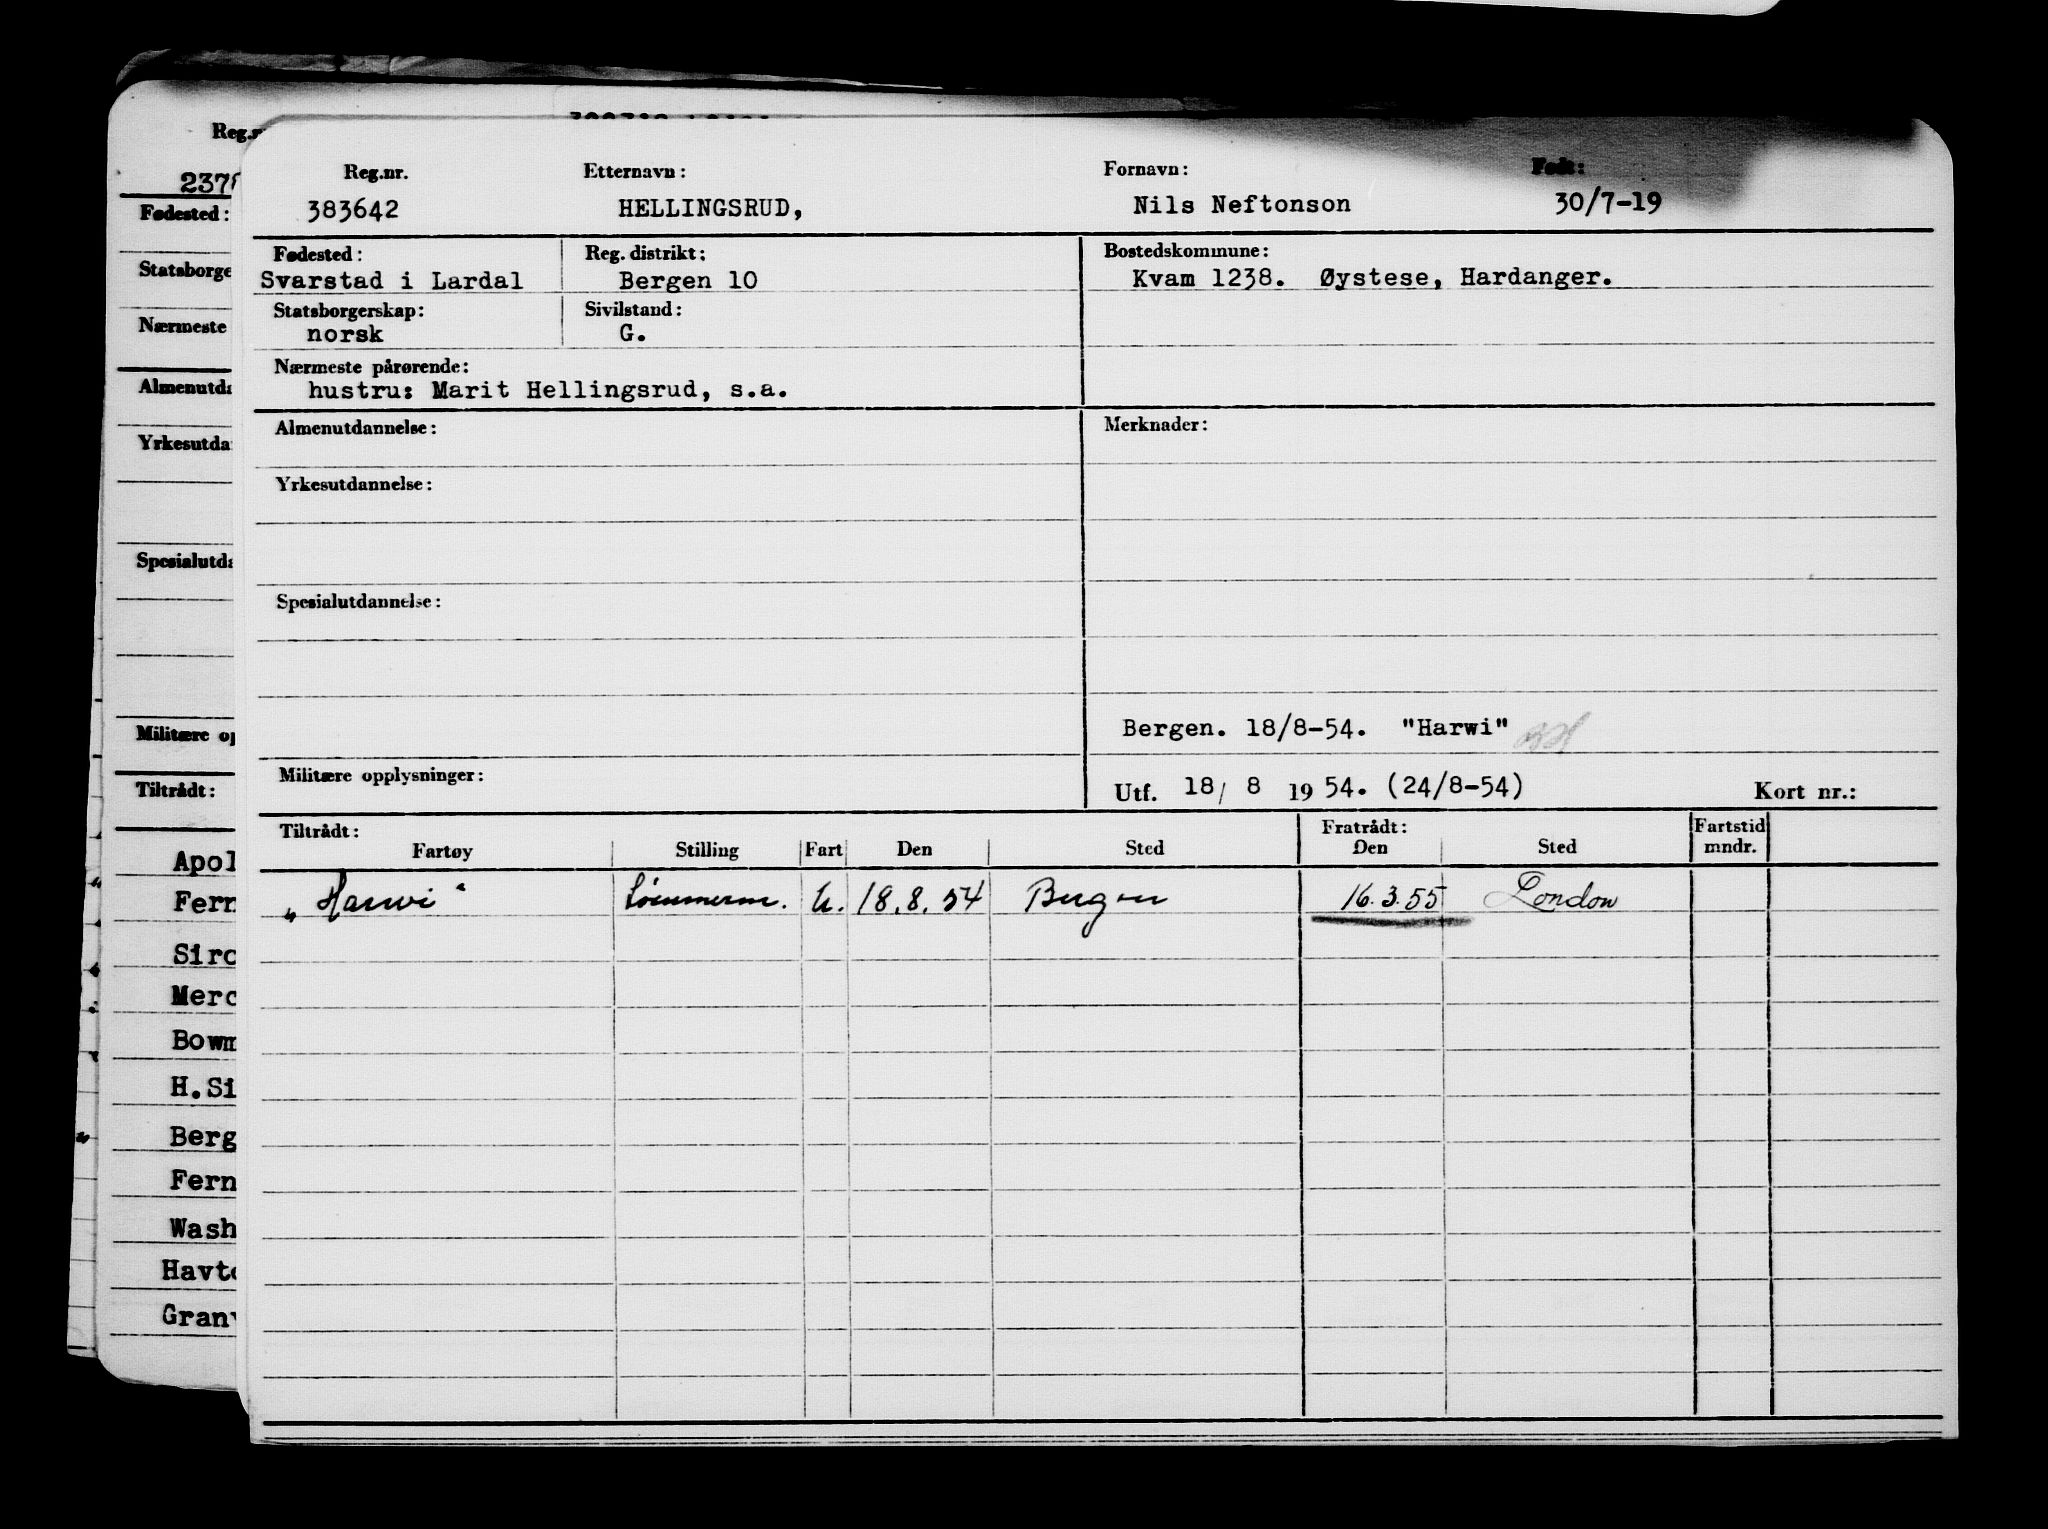 Reg.nr. Etternavn: Fornavn: Født:
383642 HELLINGSRUD, Nils Neftonson 30/7-19
Fødested: Reg. distrikt: Bostedskommune:
Svarstad i Lardal Bergen 10 Kvam 1238. Øystese, Hardanger.
Statsborgerskap: Sivilstand:
norsk G.
Nærmeste pårørende:
hustru: Marit Hellingsrud, s.a.
Almenutdannelse: Merknader:
Yrkesutdannelse:
Spesialutdannelse:
Bergen. 18/8-54. "Harwi"
Militære opplysninger:
Utf. 18/ 8 19 54. (24/8-54) Kort nr.:
Tiltrådt: Fratrådt: Fartstid
Fartøy Stilling Fart Den Sted Den Sted mndr.
"Harwi" U. 18.8.54 Bergen 16.3.55 London
Reg.n
2378
Fødested:
Statsborge
Nærmeste
Almenutda
Yrkesutda
Spesialutda
Militære op
Tiltrådt:
Apol
Fern
Siro
Merc
Bowm
H.Si
Berg
Fern
Wash
Havto
Granv